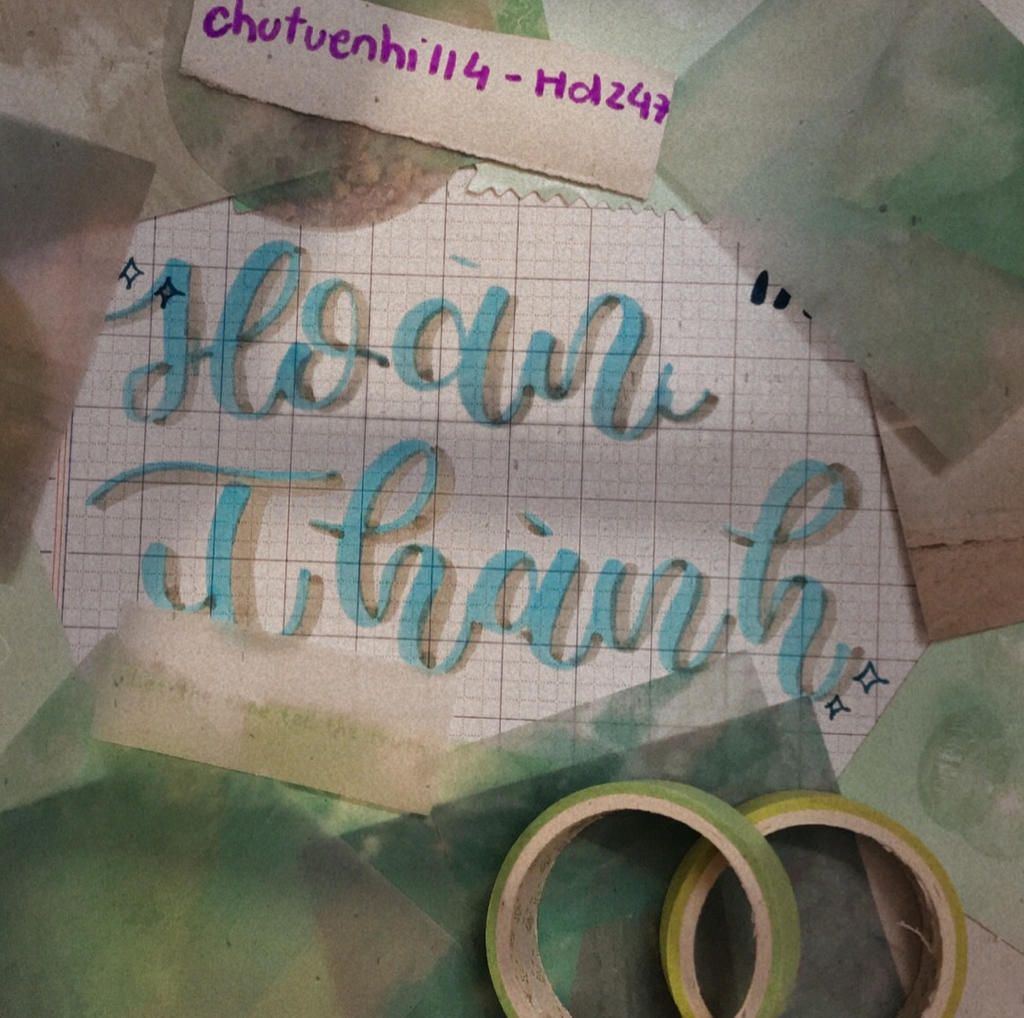 chutuenhi114 - Hd247
Hoàn
Thành